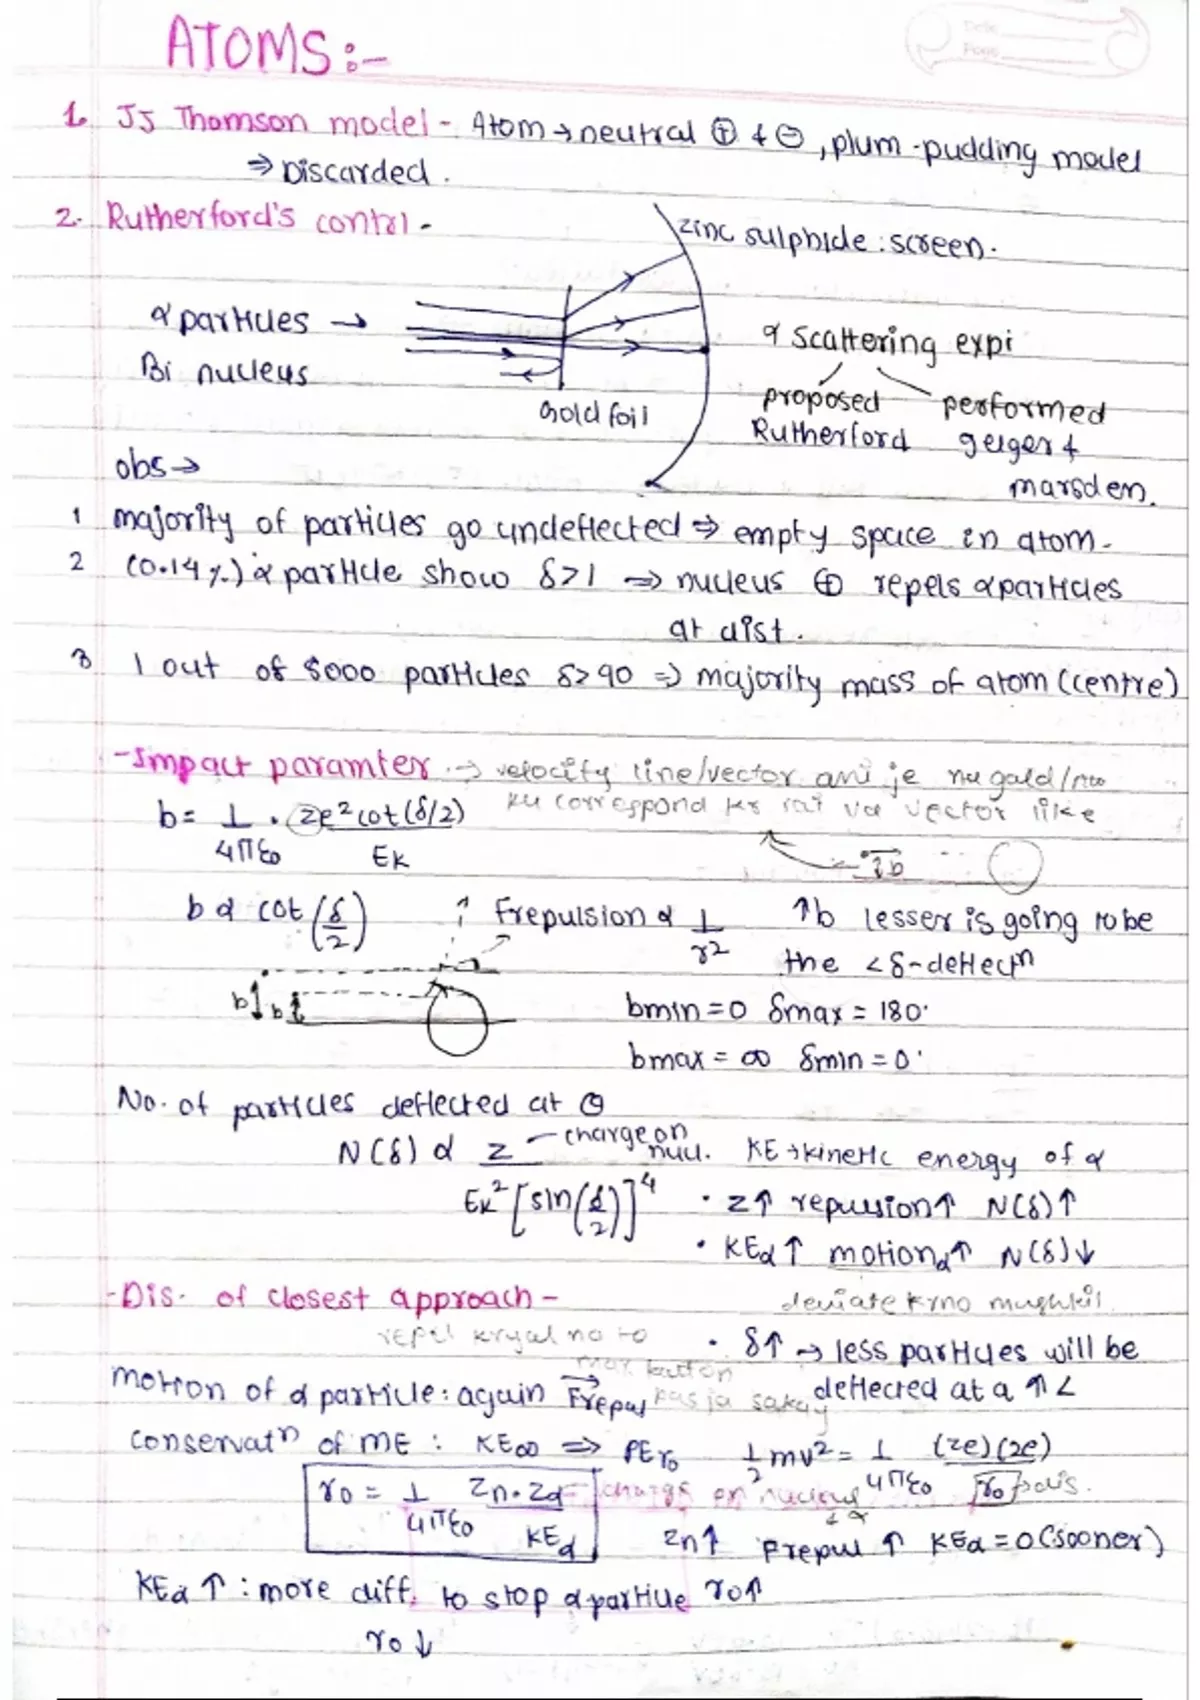 Date
Page
ATOMS:-
1. JJ Thomson model - Atom → neutral ⊕ & ⊖, plum-pudding model
⇒ Discarded.
2. Rutherford's contri -
zinc sulphide : screen.
α particles →
Bi nucleus
Gold foil
α Scattering expi
proposed performed
Rutherford geiger &
marsden.
obs →
1 majority of particles go undeflected ⇒ empty space in atom.
2 (0.14%) α particle show δ>1 ⇒ nucleus ⊕ repels α particles
at dist.
3 1 out of 8000 particles δ>90 ⇒ majority mass of atom (centre)
-Impact paramter → velocity line/vector ani je nu
ku correspond kr vector like
b = 1/4πε₀ . Ze² cot(δ/2)/Eκ
b
b α cot (δ/2)
↑ Frepulsion α 1/r²
↑b lesser is going to be
the <δ-deflectⁿ
b b
bmin = 0 δmax = 180°
bmax = ∞ δmin = 0°
No. of particles deflected at θ
N(δ) α Z/Eκ²[sin(δ/2)]⁴
charge on nucl.
KE → kinetic energy of α
• Z↑ repulsion↑ N(δ)↑
• KEα↑ motionα↑ N(δ)↓
-Dis. of closest approach -
deviate krno mushkil
repel no to
• δ↑ → less particles will be
deflected at a ↑∠
motion of α particle : again Frepul pas ja
conservatⁿ of ME : KE∞ ⇒ PEr₀ 1/2 mv² = 1/4πε₀ (Ze)(2e)/r₀
r₀ = 1/4πε₀ Zn.Zα/KEα
charge on nucleus & α
Zn↑ Frepul ↑ KEα = 0 (sooner)
KEα ↑ : more diff. to stop α particle r₀↑
r₀ ↓